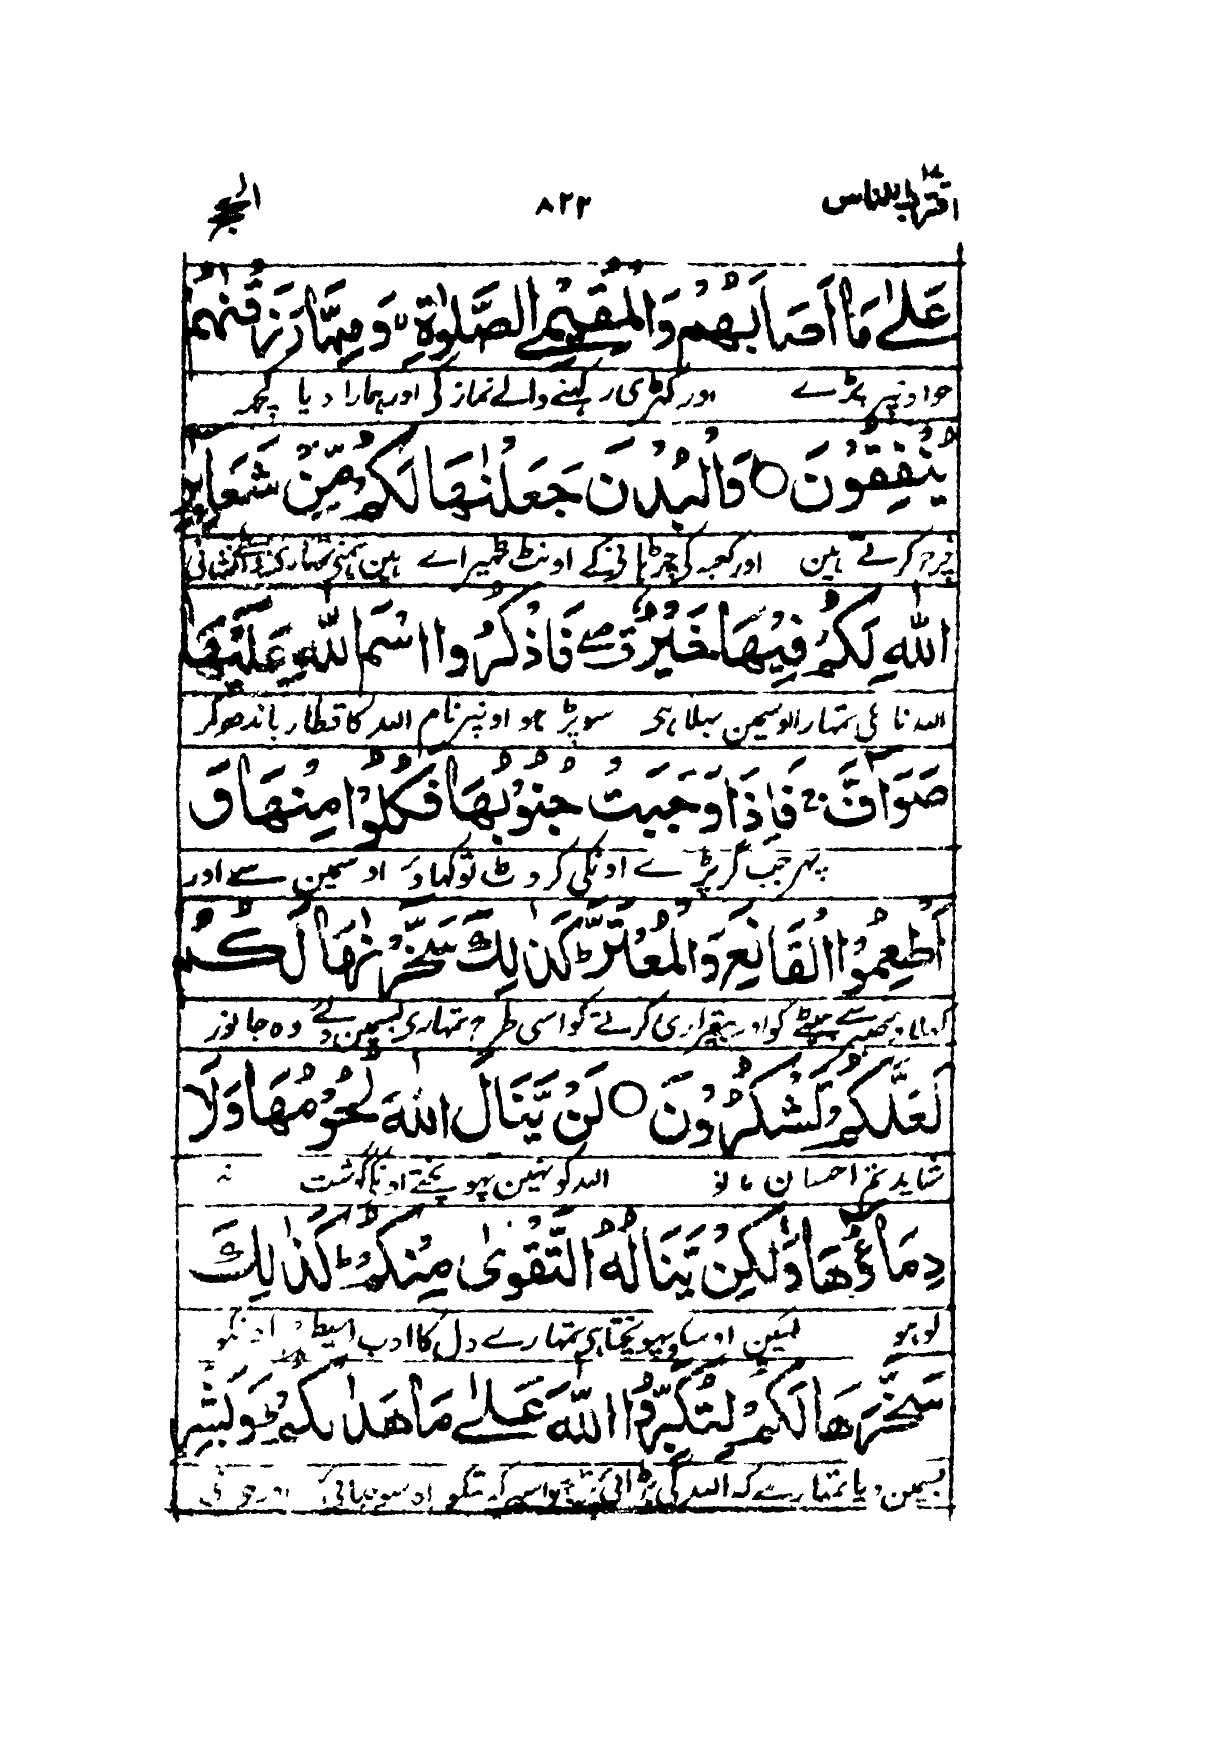 اقترب للناس ۱۷ ۸۲۲ الحج
عَلٰى مَا أَصَابَهُمْ وَالْمُقِيْمِى الصَّلٰوةِ ۙ وَمِمَّا رَزَقْنٰهُمْ
جو اونپر پڑے اور کھڑی رکہنے والے نماز کی اور ہمارا دیا کچھ
يُنْفِقُوْنَ ○ وَالْبُدْنَ جَعَلْنٰهَا لَكُمْ مِّنْ شَعَآئِرِ
خرچ کرتے ہین اور کعبہ کی چڑہانی کے اونٹ ٹھیراے ہین ہمنی تمہاری نشانی
اللّٰهِ لَكُمْ فِيْهَا خَيْرٌ ق صے فَاذْكُرُوا اسْمَ اللّٰهِ عَلَيْهَا
اللہ تمہارا اوسمین بہلا ہی سو پڑہو اونپر نام اللہ کا قطار باندھ کر
صَوَآفَّ ۚ فَاِذَا وَجَبَتْ جُنُوْبُهَا فَكُلُوْا مِنْهَا وَ
پہر جب گر پڑے اونکی کروٹ تو کہاؤ اوسمین سے اور
أَطْعِمُوا الْقَانِعَ وَالْمُعْتَرَّ ؕ كَذٰلِكَ سَخَّرْنٰهَا لَكُمْ
کہلاؤ صبر سے بیٹھے کو اور بیقراری کرتے کو اسی طرح تمہاری بسمین دئے وہ جانور
لَعَلَّكُمْ تَشْكُرُوْنَ ○ لَنْ يَّنَالَ اللّٰهَ لُحُوْمُهَا وَلَا
شاید تم احسان مانو اللہ کو نہین پہونچتے اونکا گوشت نہ
دِمَآؤُهَا وَلٰكِنْ يَّنَالُهُ التَّقْوٰى مِنْكُمْ ؕ كَذٰلِكَ
لوہو لیکن اوسکو پہونچتا ہی تمہارے دل کا ادب اسیطرح اونکو
سَخَّرَهَا لَكُمْ لِتُكَبِّرُوا اللّٰهَ عَلٰى مَا هَدٰىكُمْ ؕ وَبَشِّرِ
بسمین دیا تمہارے کہ اللہ کی بڑائی پڑہو اسپر کہ تمکو اور